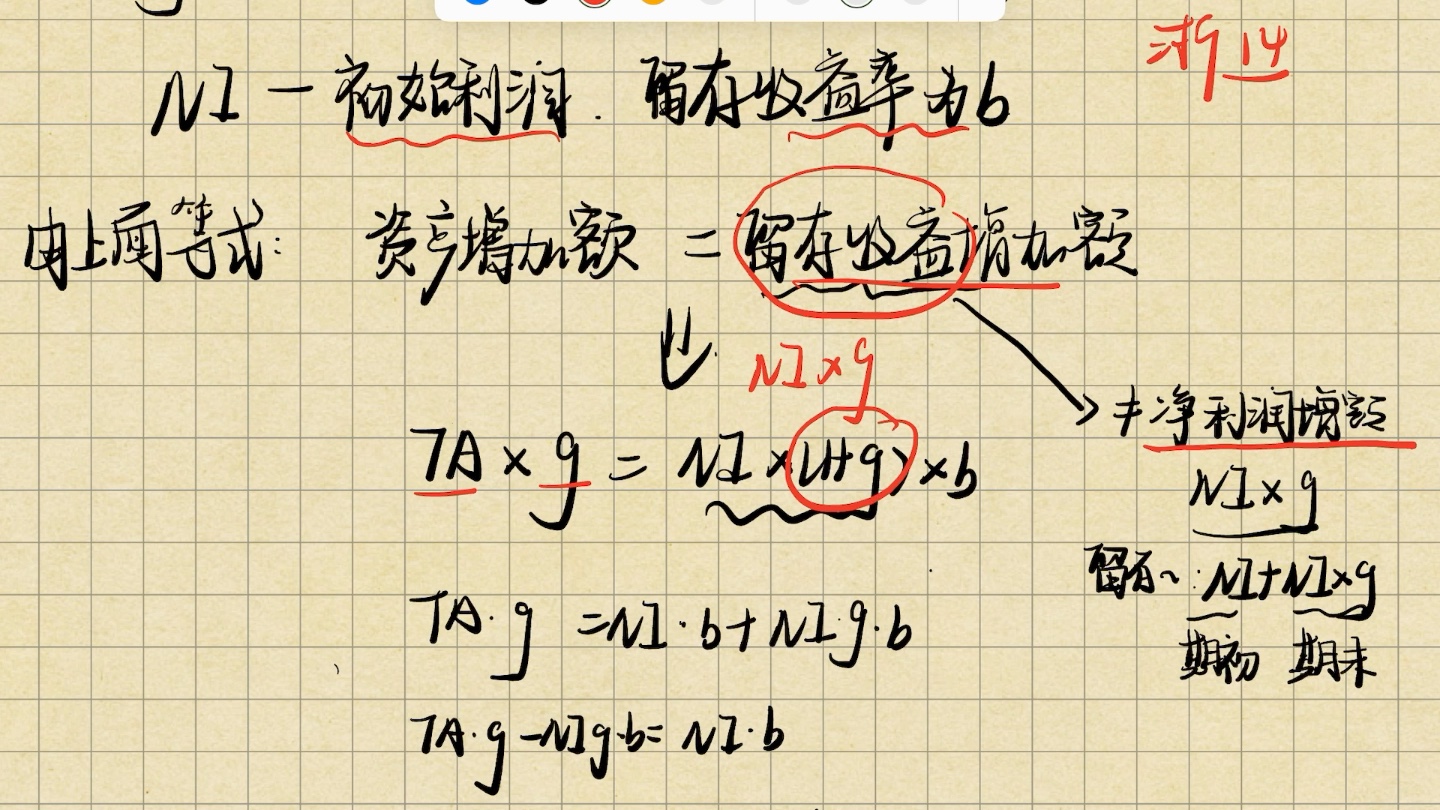 浙14
NI — 初始利润. 留存收益率为b
由上面等式: 资产增加额 = 留存收益增加额
NI×g
≠净利润增额
TA × g = NI × (1+g) × b
NI×g
留存~: NI+NI×g
期初 期末
TA·g = NI·b + NI·g·b
TA·g - NIg·b = NI·b